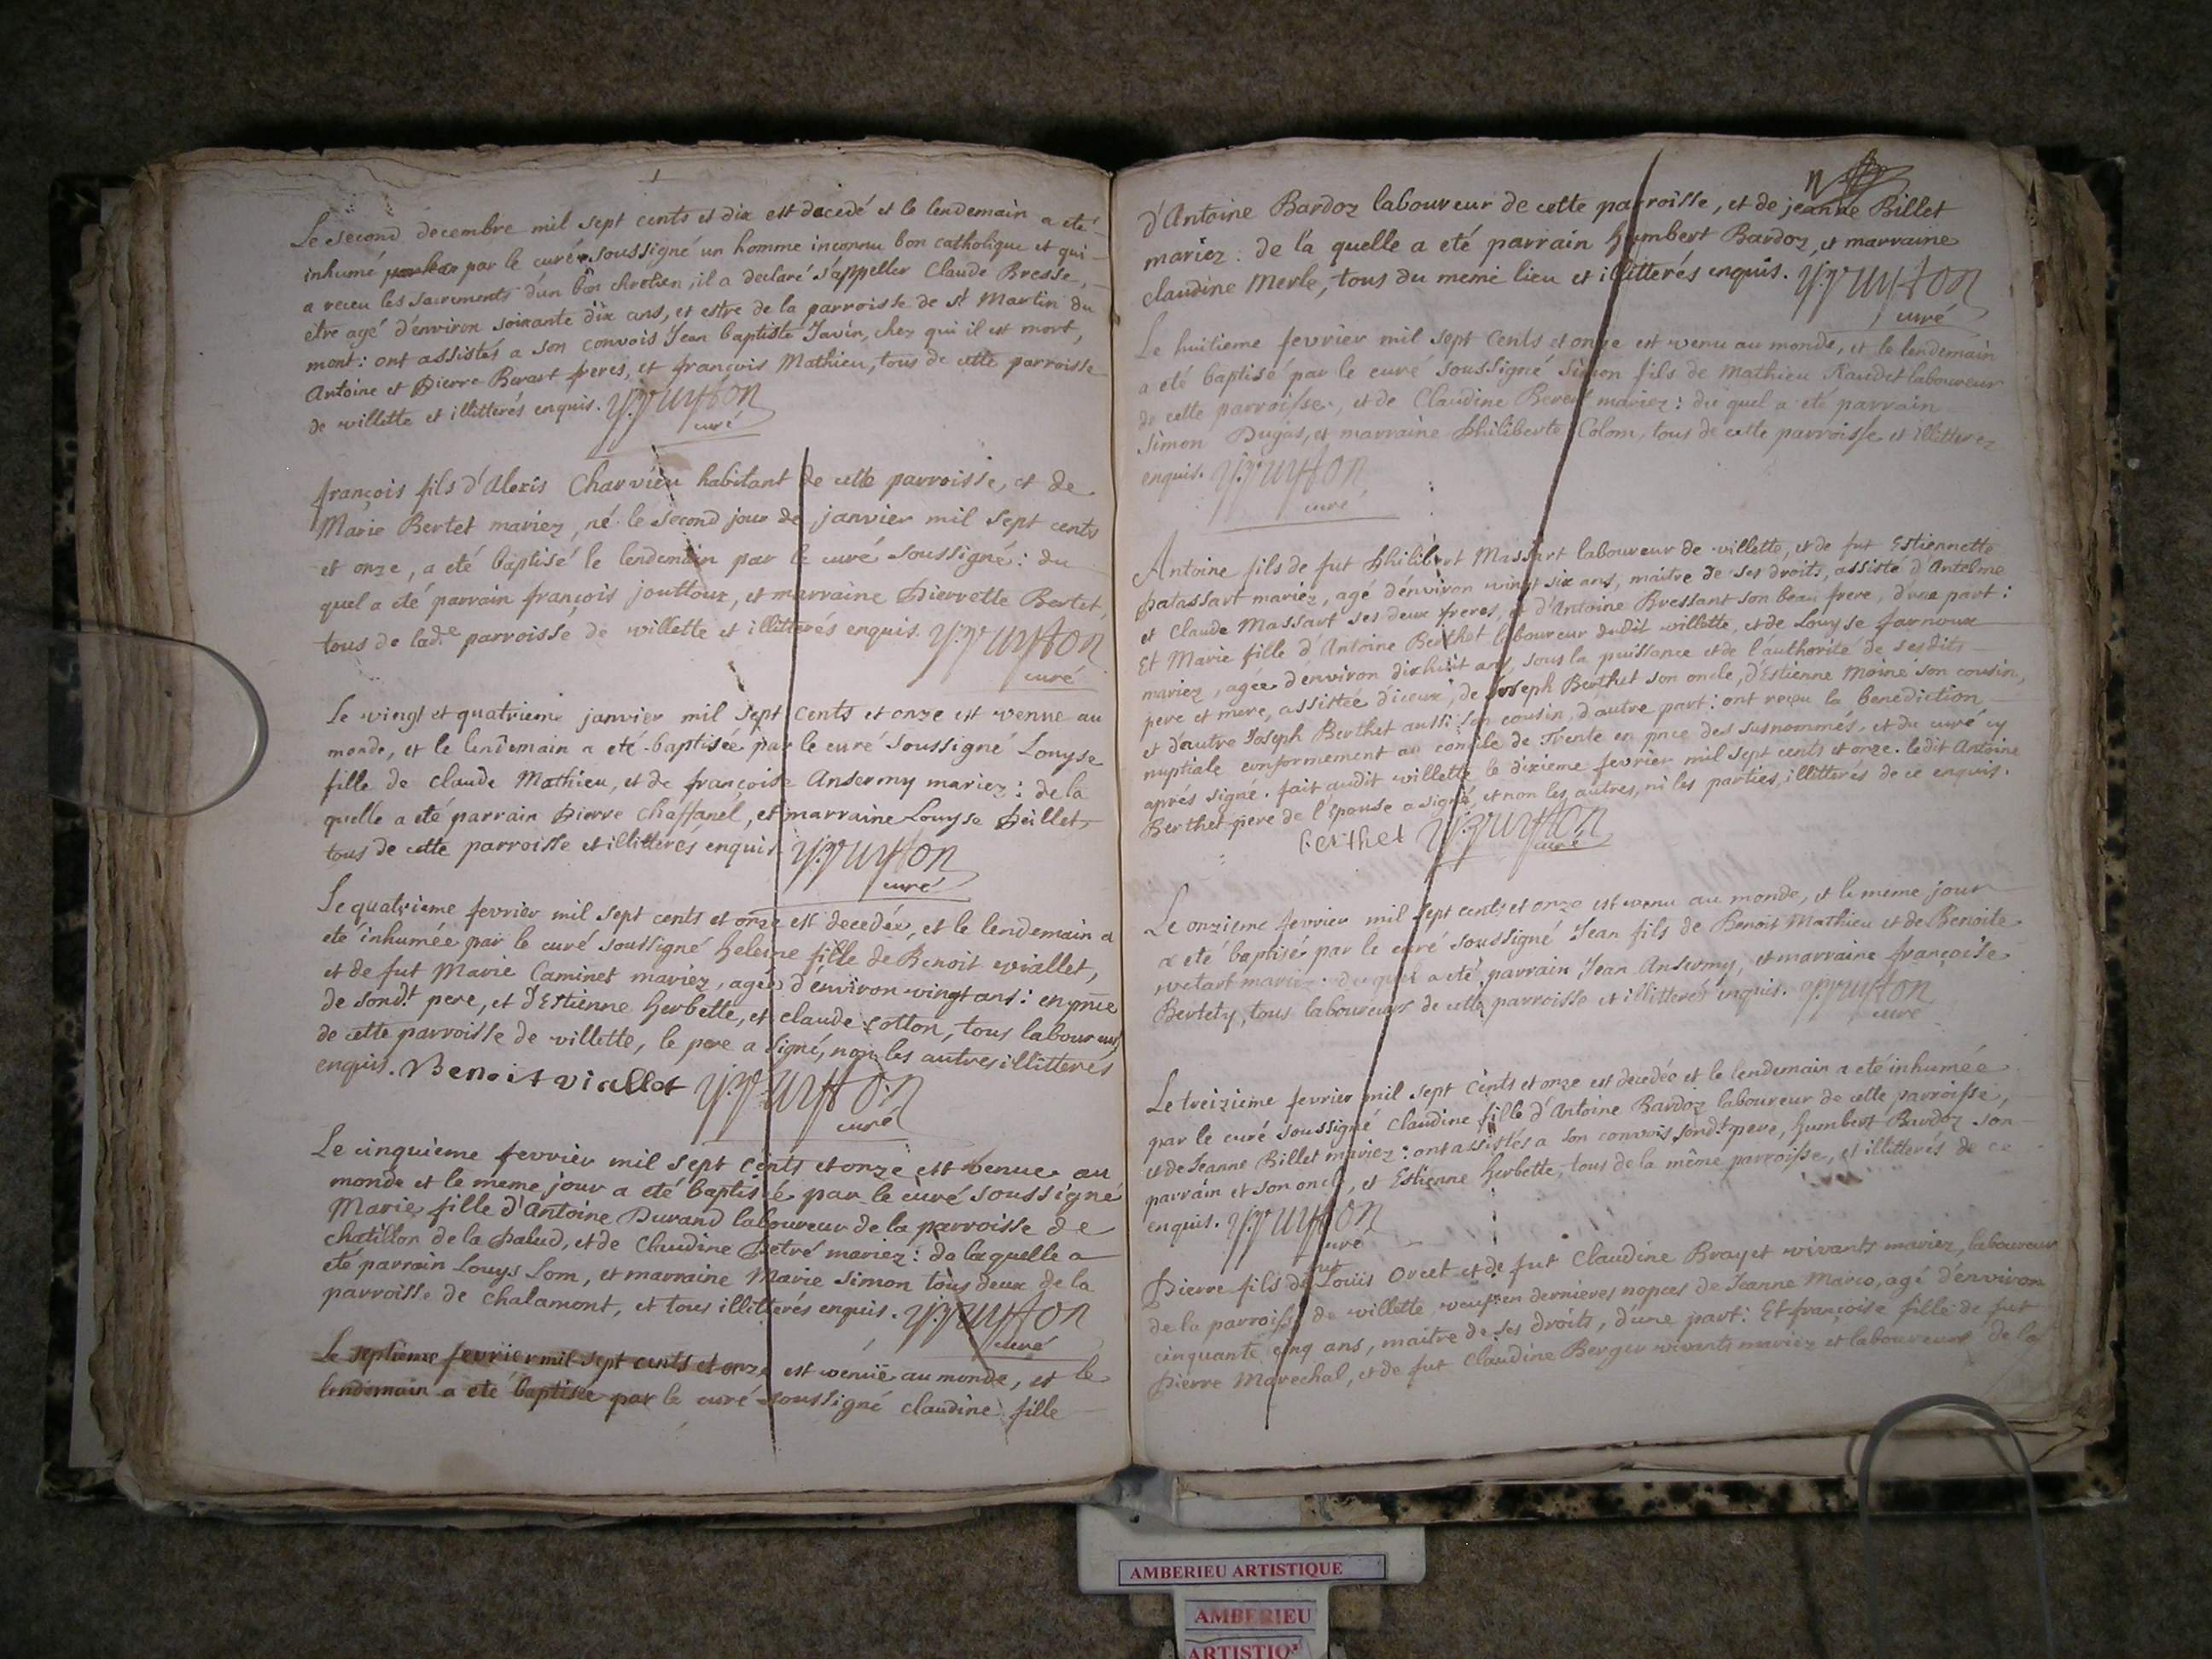 Le second decembre mil sept cents et dix est decedé et le lendemain a eté
inhumé par le curé soussigné un homme inconnu bon catholique et qui
a receu les sacrements d'un bon chretien, il a declaré s'appeller Claude Bresse,
etre agé d'environ soixante dix ans, et estre de la parroisse de st Martin du
mont: ont assistés a son convois Jean baptiste Javin, chez qui il est mort,
Antoine et Pierre Berart freres, et françois Mathieu, tous de cette parroisse
de villette et illitterés enquis.
curé
françois fils d'Alexis Charvieu habitant de cette parroisse, et de
Marie Bertet mariez, né le second jour de janvier mil sept cents
et onze, a eté baptisé le lendemain par le curé soussigné: du
quel a eté parrain françois jouttoux, et marraine Pierrette Bertet,
tous de lad.e parroisse de villette et illitterés enquis.
curé
Le vingt et quatrieme janvier mil sept cents et onze est venue au
monde, et le lendemain a eté baptisée par le curé soussigné Louyse
fille de Claude Mathieu, et de françoise Ansermy mariez: de la
quelle a eté parrain Pierre Chaffanel, et marraine Louyse Peillet,
tous de cette parroisse et illitterés enquis.
curé
Le quatrieme fevrier mil sept cents et onze est decedée, et le lendemain a
eté inhumée par le curé soussigné Heleine fille de Benoit viallet,
et de fut Marie Caminet mariez, agée d'environ vingt ans: en pnce
de sond.t pere, et d'Estienne Herbette, et claude cotton, tous laboureurs
de cette parroisse de villette, le pere a signé, non les autres illitterés
enquis. Benoit viallet
curé
Le cinquieme fevrier mil sept cents et onze est venue au
monde et le meme jour a eté baptisée par le curé soussigné
Marie fille d'Antoine Durand laboureur de la parroisse de
chatillon de la Palud, et de Claudine Petré mariez: de laquelle a
eté parrain Louys Lom, et marraine Marie Simon tous deux de la
parroisse de chalamont, et tous illitterés enquis.
curé
Le septieme fevrier mil sept cents et onze est venüe au monde, et le
lendemain a eté baptisée par le curé soussigné claudine fille
d'Antoine Bardoz laboureur de cette parroisse, et de jeanne Billet
mariez: de la quelle a eté parrain humbert Bardoz, et marraine
claudine Merle, tous du meme lieu et illitterés enquis.
curé
Le huitieme fevrier mil sept cents et onze est venu au monde, et le lendemain
a eté baptisé par le curé soussigné Simon fils de Mathieu Raudet laboureur
de cette parroisse, et de Claudine mariez: du quel a eté parrain
Simon Dugas, et marraine Philiberte Colom, tous de cette parroisse et illitterez
enquis.
curé
Antoine fils de fut Philibert Massart laboureur de villette, et de fut Estiennette
Patassart mariez, agé d'environ vingt six ans, maitre de ses droits, assisté d'Antelme
et Claude Massart ses deux freres, et d'Antoine Bressant son beau frere, d'une part:
Et Marie fille d'Antoine Berthet laboureur dudit villette, et de Louyse farnoux
mariez, agée d'environ dixhuit ans, sous la puissance et de l'authorité de sesdits
pere et mere, assistée d'iceux, de Joseph Berthet son oncle, d'Estienne Moine son cousin,
et d'autre Joseph Berthet aussi son cousin, d'autre part: ont reçu la benediction
nuptiale conformement au concile de Trente en pnce des susnommés, et du curé cy
aprés signé. fait audit villette le dixieme fevrier mil sept cents et onze. ledit Antoine
Berthet pere de l'épouse a signé, et non les autres, ni les parties, illitterés de ce enquis.
berthet
curé
Le onzieme fevrier mil sept cents et onze est venu au monde, et le meme jour
a eté baptisé par le curé soussigné Jean fils de Benoit Mathieu et de Benoite
mariez: duquel a eté parrain Jean Ansermy, et marraine françoise
Bertety, tous laboureurs de cette parroisse et illitterés enquis.
curé
Le treizieme fevrier mil sept cents et onze est decedée et le lendemain a eté inhumée
par le curé soussigné Claudine fille d'Antoine Bardoz laboureur de cette parroisse,
et de Jeanne Billet mariez: ont assistés a son convois sond.t pere, humbert Bardoz son
parrain et son oncle, et Estienne Herbette, tous de la même parroisse, et illitterés de ce
enquis.
curé
Pierre fils de fut Louis Orcet et de fut Claudine Brayet vivants mariez, laboureur
de la parroisse de villette veuf en dernieres nopces de Jeanne Marco, agé d'environ
cinquante cinq ans, maitre de ses droits, d'une part: Et françoise fille de fut
Pierre Marechal, et de fut Claudine Berger vivants mariez et laboureurs de la
AMBERIEU ARTISTIQUE
AMBERIEU
ARTISTIQ